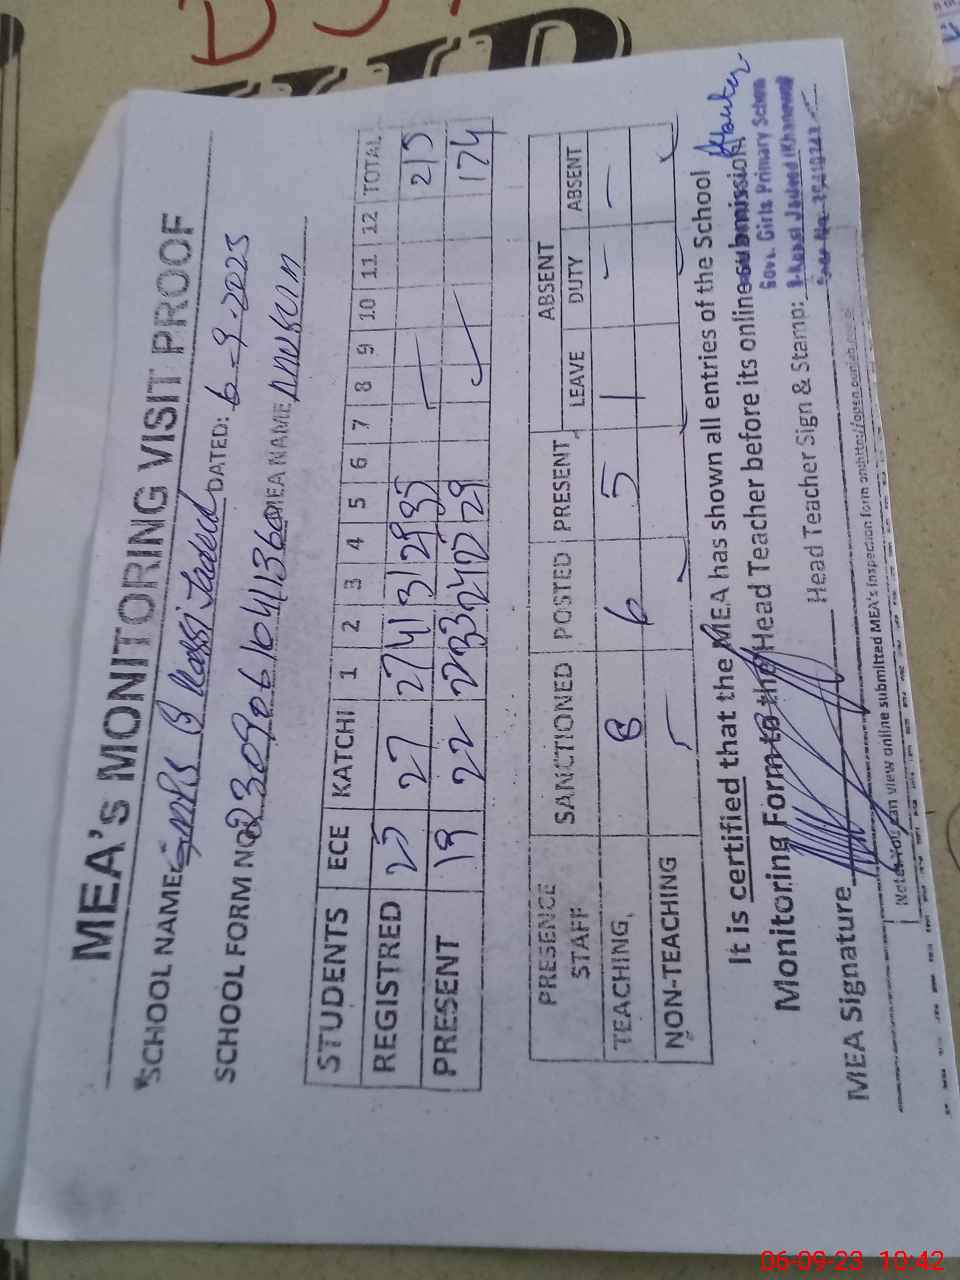 MEA's MONITORING VISIT PROOF
SCHOOL NAME GMPS DATED: 6-9-2023
SCHOOL FORM NO. MEA NAME
STUDENTS ECE KATCHI 1 2 3 4 5 6 7 8 9 10 11 12 TOTAL
REGISTRED 25 27 27 41 31 29 35 215
PRESENT 19 22 22 33 24 29 174
PRESENCE STAFF SANCTIONED POSTED PRESENT ABSENT
LEAVE DUTY ABSENT
TEACHING 8 6 5 1 - -
NON-TEACHING
It is certified that the MEA has shown all entries of the School
Monitoring Form to the Head Teacher before its online submission.
Govt. Girls Primary School
Jadeed (Khanewal)
MEA Signature Head Teacher Sign & Stamp:
Note: You can view online submitted MEA's inspection form on
06-09-23 10:42